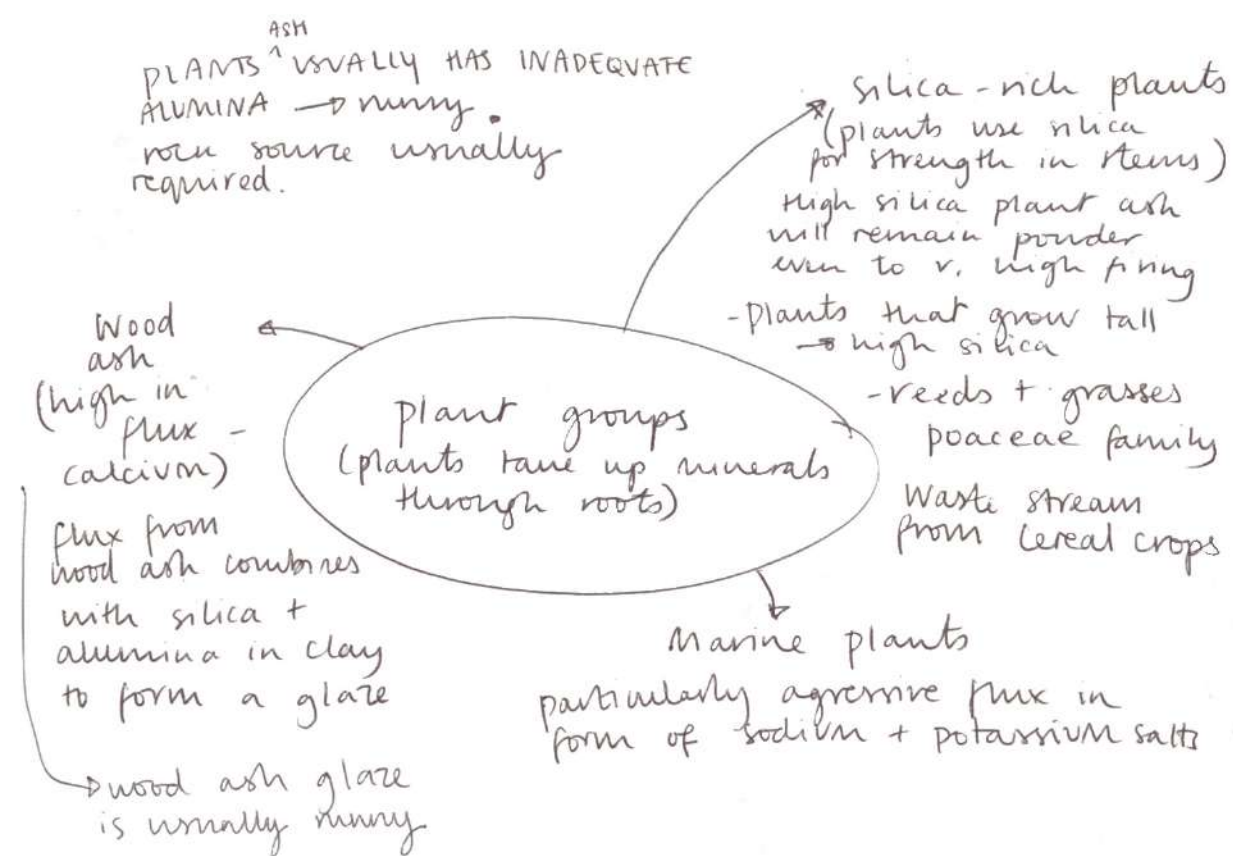 PLANTS ASH USUALLY HAS INADEQUATE
ALUMINA → runny.
rock source usually
required.
silica-rich plants
(plants use silica
for strength in stems)
High silica plant ash
will remain powder
even to v. high firing
- Plants that grow tall
→ high silica
- reeds + grasses
poaceae family
Waste stream
from cereal crops
Wood
ash
(high in
flux -
calcium)
flux from
wood ash combines
with silica +
alumina in clay
to form a glaze
→ wood ash glaze
is usually runny
plant groups
(plants take up minerals
through roots)
Marine plants
particularly agressive flux in
form of sodium + potassium salts